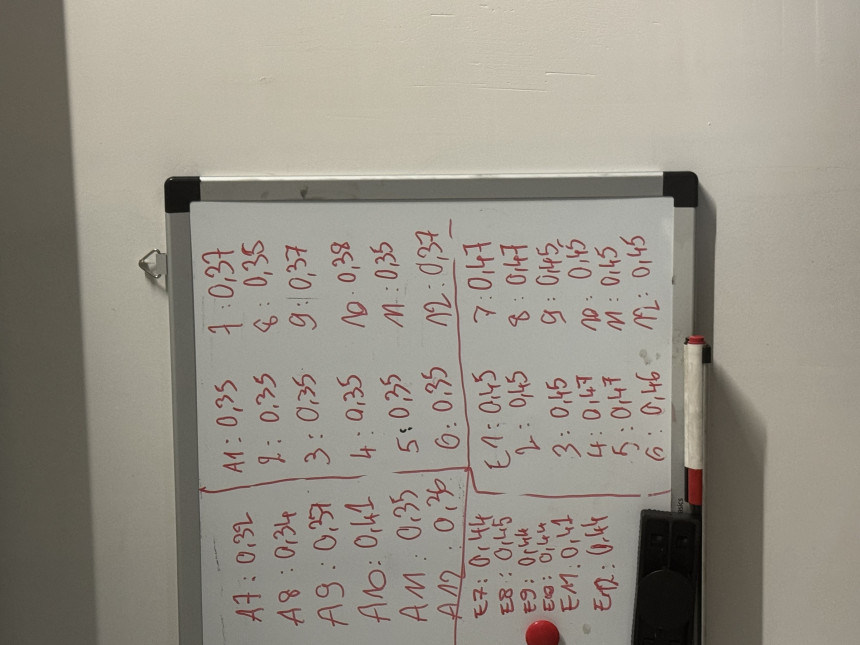 A7: 0,32
A8: 0,34
A9: 0,37
A10: 0,41
A11: 0,35
A12: 0,36
A1: 0,35
2: 0,35
3: 0,35
4: 0,35
5: 0,35
6: 0,35
7: 0,37
8: 0,35
9: 0,37
10: 0,38
11: 0,35
12: 0,37
E7: 0,44
E8: 0,45
E9: 0,44
E10: 0,44
E11: 0,41
E12: 0,44
E1: 0,45
2: 0,45
3: 0,45
4: 0,47
5: 0,47
6: 0,46
7: 0,47
8: 0,47
9: 0,45
10: 0,45
11: 0,45
12: 0,45